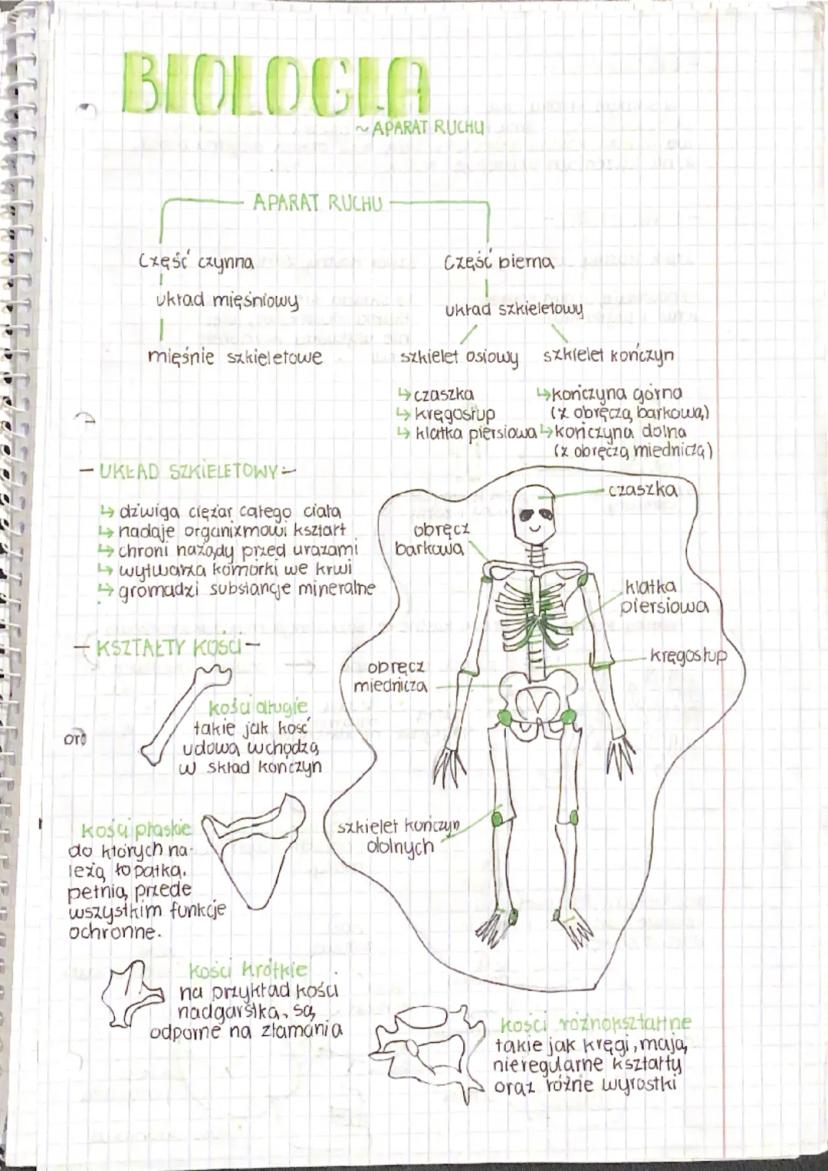 BIOLOGIA
~ APARAT RUCHU
APARAT RUCHU
Część czynna
układ mięśniowy
mięśnie szkieletowe
Część bierna
układ szkieletowy
szkielet osiowy
↳ czaszka
↳ kręgosłup
↳ klatka piersiowa
szkielet kończyn
↳ kończyna górna
(z obręczą barkową)
↳ kończyna dolna
(z obręczą miedniczą)
- UKŁAD SZKIELETOWY -
↳ dźwiga ciężar całego ciała
↳ nadaje organizmowi kształt
↳ chroni naządy przed urazami
↳ wytwarza komórki we krwi
↳ gromadzi substancje mineralne
czaszka
obręcz
barkowa
klatka
piersiowa
kręgosłup
obręcz
miednicza
szkielet kończyn
dolnych
- KSZTAŁTY KOŚCI -
kości długie
takie jak kość
udowa wchodzą
w skład kończyn
kości płaskie
do których na-
leżą łopatka.
pełnią przede
wszystkim funkcje
ochronne.
kości krótkie
na przykład kości
nadgarstka, są
odporne na złamania
kości różnokształtne
takie jak kręgi, mają
nieregularne kształty
oraz różne wyrostki